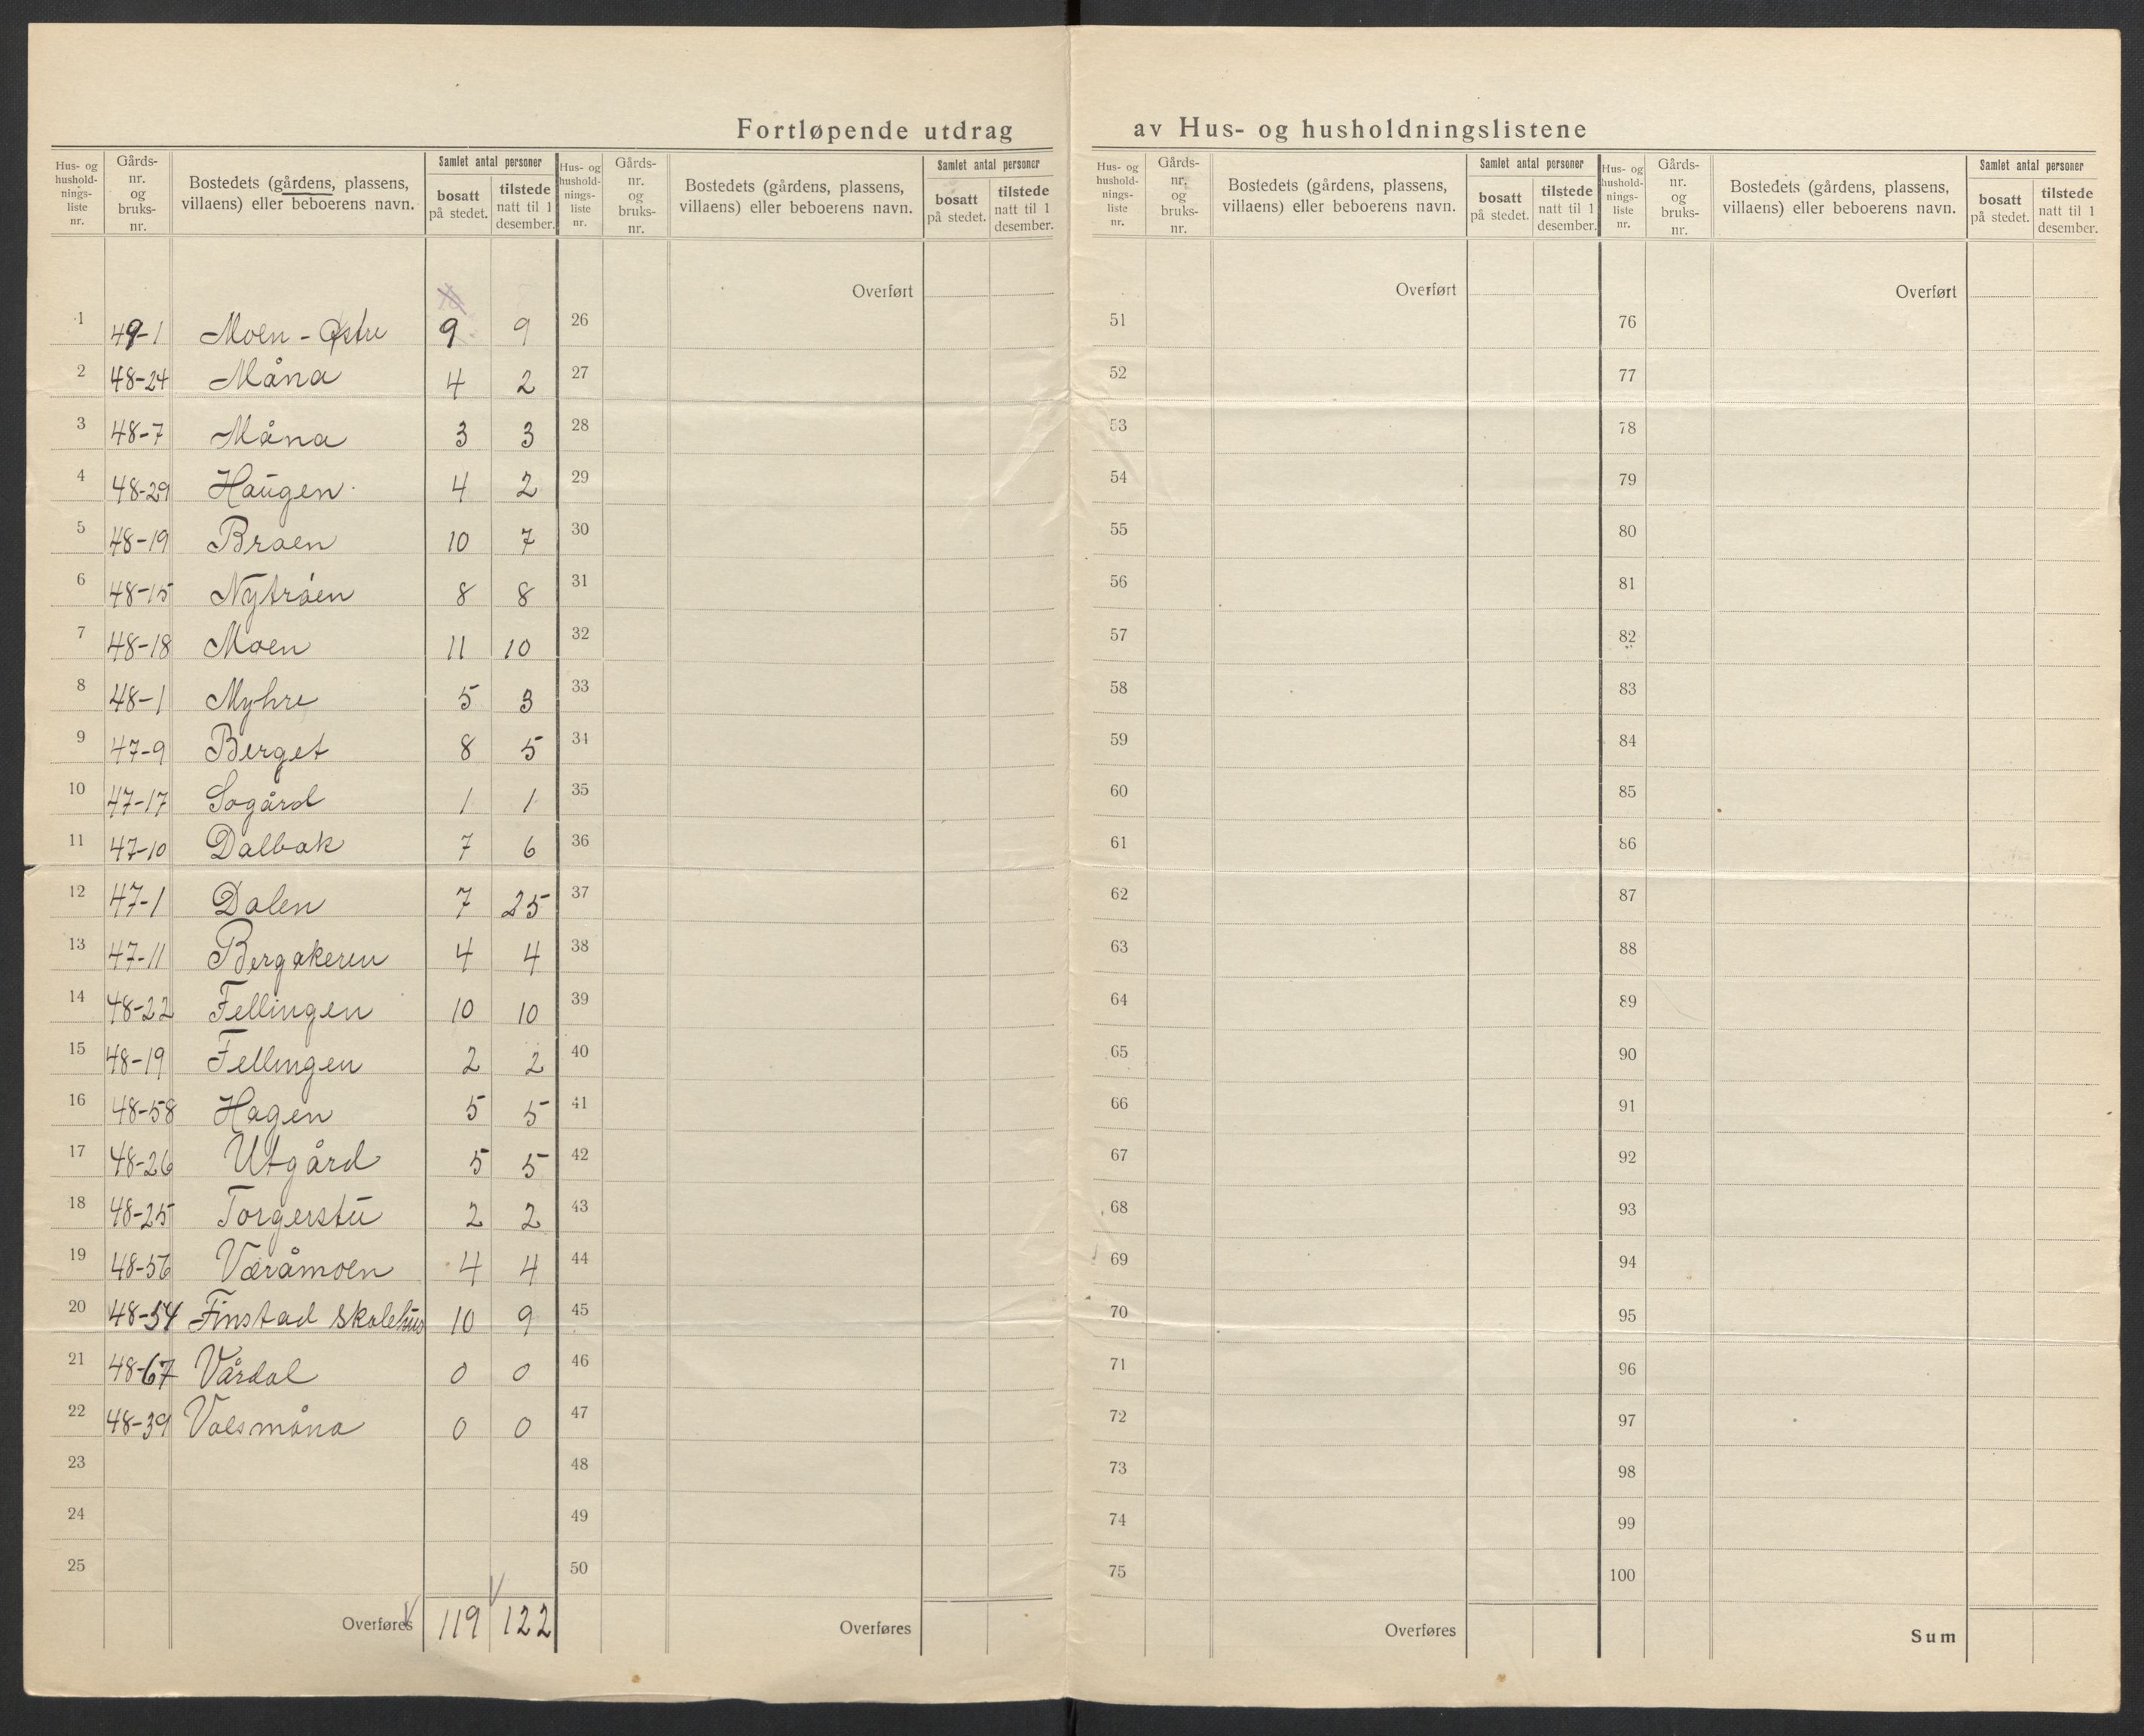 Fortløpende utdrag av Hus- og husholdningslistene
Hus- og hushold- nings- liste nr.
Gårds- nr. og bruks- nr.
Bostedets (gårdens, plassens, villaens) eller beboerens navn.
Samlet antal personer
bosatt på stedet.
tilstede natt til 1 desember.
Hus- og hushold- nings- liste nr.
Gårds- nr. og bruks- nr.
Bostedets (gårdens, plassens, villaens) eller beboerens navn.
Samlet antal personer
bosatt på stedet.
tilstede natt til 1 desember.
Hus- og hushold- nings- liste nr.
Gårds- nr. og bruks- nr.
Bostedets (gårdens, plassens, villaens) eller beboerens navn.
Samlet antal personer
bosatt på stedet.
tilstede natt til 1 desember.
Hus- og hushold- nings- liste nr.
Gårds- nr. og bruks- nr.
Bostedets (gårdens, plassens, villaens) eller beboerens navn.
Samlet antal personer
bosatt på stedet.
tilstede natt til 1 desember.
Overført Overført Overført
1 49-1 Moen - Østre 9 9 26 51 76
2 48-24 Måna 4 2 27 52 77
3 48-7 Måna 3 3 28 53 78
4 48-29 Haugen 4 2 29 54 79
5 48-19 Braen 10 7 30 55 80
6 48-15 Nytrøen 8 8 31 56 81
7 48-18 Moen 11 10 32 57 82
8 48-1 Myhre 5 3 33 58 83
9 47-9 Berget 8 5 34 59 84
10 47-17 Sogård 1 1 35 60 85
11 47-10 Dalbak 7 6 36 61 86
12 47-1 Dalen 7 25 37 62 87
13 47-11 Bergakeren 4 4 38 63 88
14 48-22 Fellingen 10 10 39 64 89
15 48-19 Fellingen 2 2 40 65 90
16 48-58 Hagen 5 5 41 66 91
17 48-26 Utgård 5 5 42 67 92
18 48-25 Torgerstu 2 2 43 68 93
19 48-56 Væråmoen 4 4 44 69 94
20 48-54 Finstad skolehus 10 9 45 70 95
21 48-67 Vårdal 0 0 46 71 96
22 48-39 Valsmåna 0 0 47 72 97
23 48 73 98
24 49 74 99
25 50 75 100
Overføres 119 122 Overføres Overføres Sum